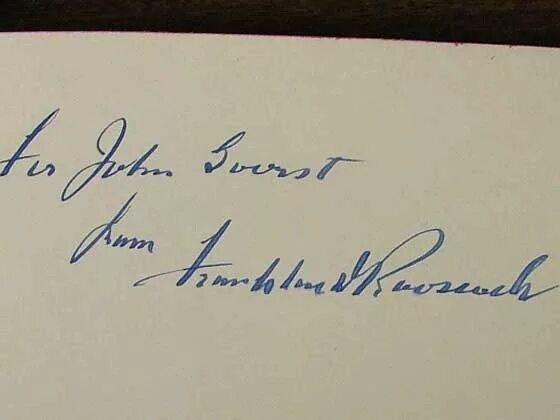 For John Goerst
from
Franklin D Roosevelt